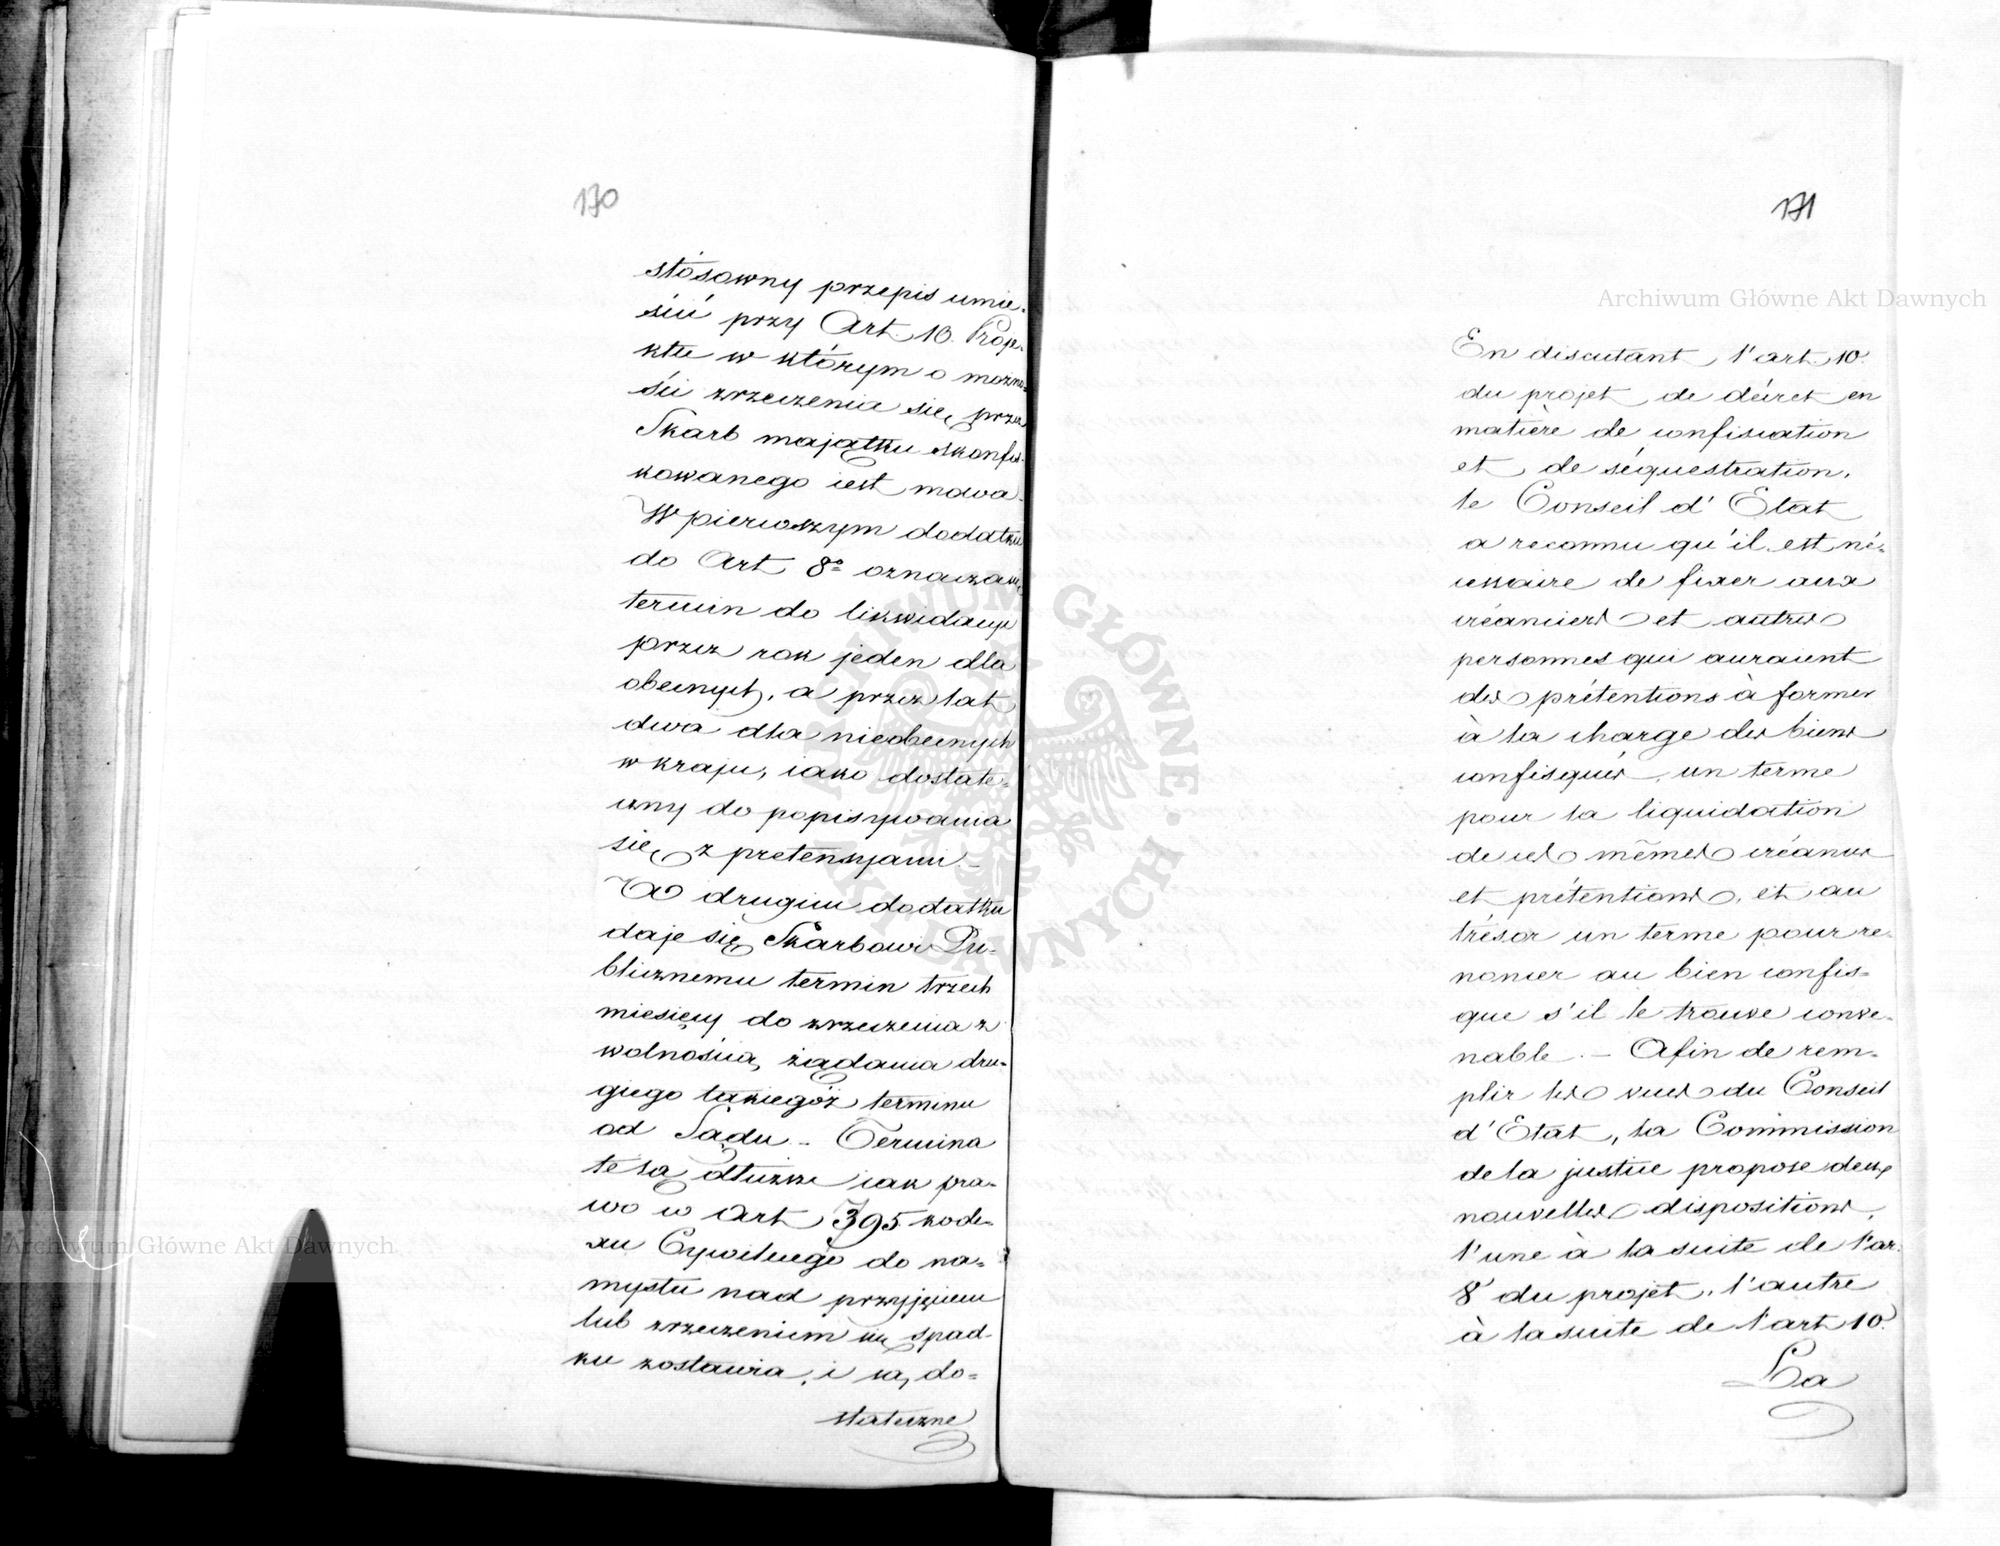 170
stósowny przepis umie-
ścić przy Art. 10. Proje-
ktu w którym o możno-
ści zrzeczenia się, przez
Skarb majątku skonfis-
kowanego iest mowa.
W pierwszym dodatku
do Art 8º oznaczam
termin do likwidacyi
przez rok jeden dla
obecnych, a przez lat
dwa dla nieobecnych
w kraju, iako dostate-
czny do popisywania
się z pretensyami –
W drugim dodatku
daje się Skarbowi Pu-
blicznemu termin trzech
miesięcy do zrzeczenia z
wolnością, żądania dru-
giego takiegóż terminu
od Sądu – Termina
te są dłuższe iak pra-
wo w Art 795 kode-
xu Cywilnego do na-
mysłu nad przyjęciem
lub zrzeczeniem się spad-
ku zostawia, i są, do-
stateczne
171
Archiwum Główne Akt Dawnych
En discutant l'art. 10.
du projet de décret en
matière de confiscation
et de séquestration,
le Conseil d'Etat
a reconnu qu'il est né-
cessaire de fixer aux
créanciers et autres
personnes qui auraient
des prétentions à former
à la charge des biens
confisqués, un terme
pour la liquidation
de ces mêmes créances
et prétentions, et au
trésor un terme pour re-
noncer au bien confis-
que s'il le trouve conve-
nable. – Afin de rem-
plir les vues du Conseil
d'Etat, la Commission
de la justice propose deux
nouvelles dispositions,
l'une à la suite de l'ar.
8 du projet, l'autre
à la suite de l'art 10.
La
Archiwum Główne Akt Dawnych
ARCHIWUM GŁÓWNE AKT DAWNYCH